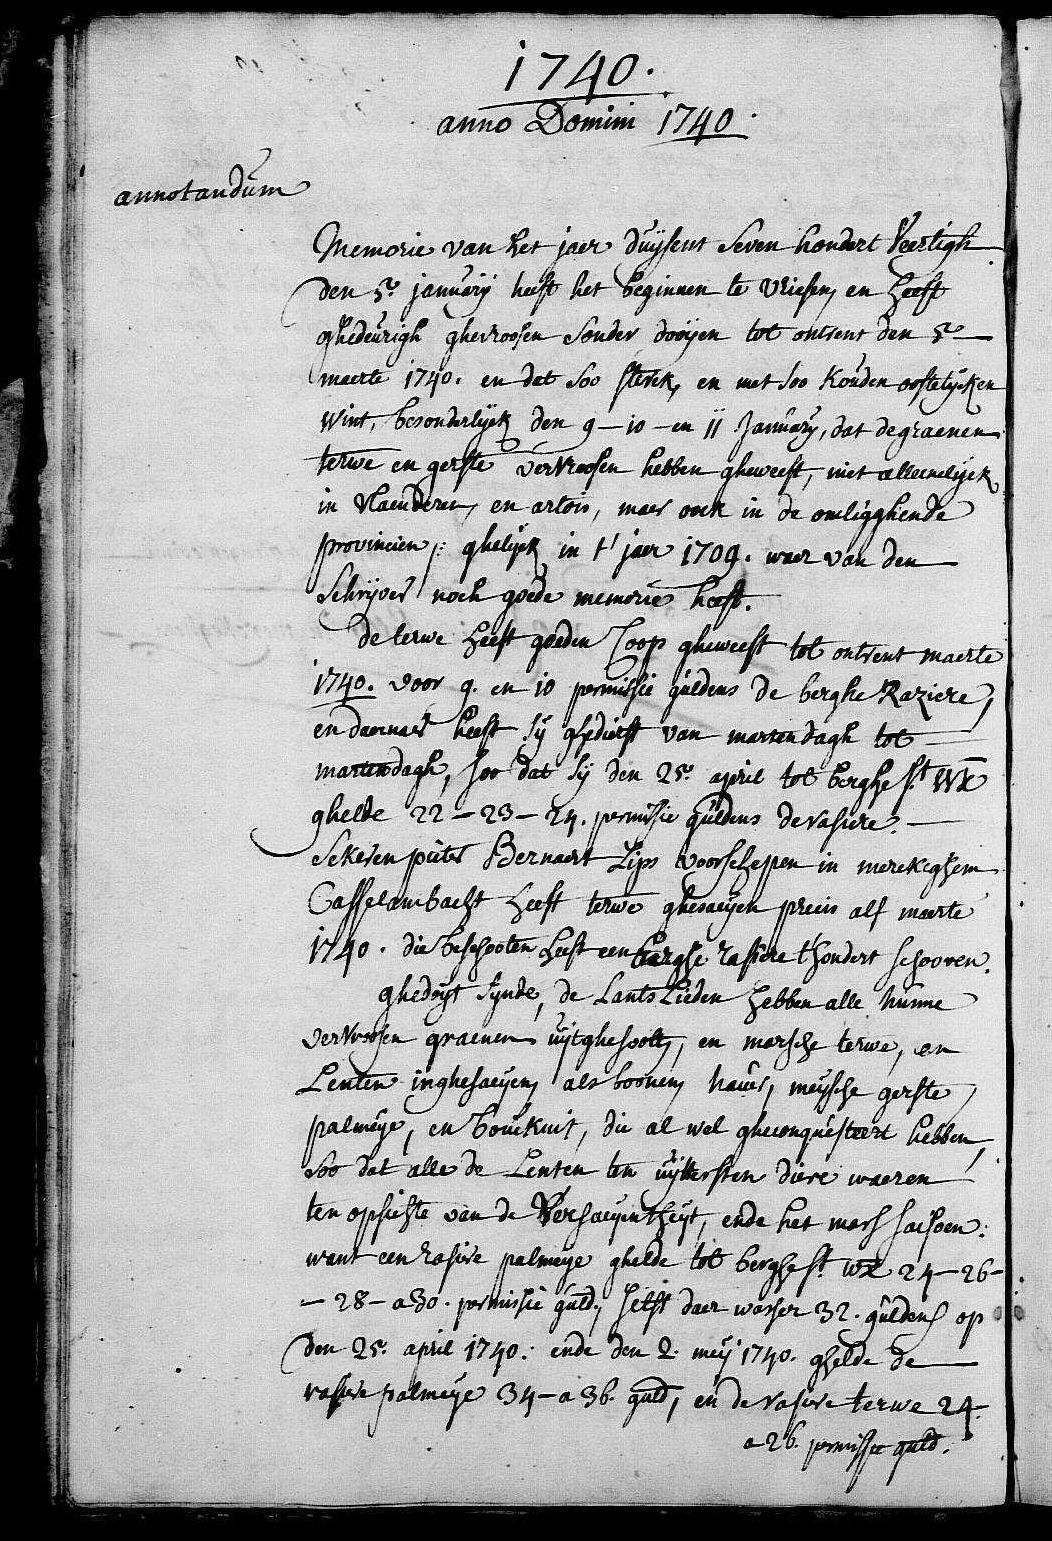 1740.
anno Domini 1740.
annotandum
Memorie van het jaer duijsent seven hondert Veertigh
den 5.e januarij heeft het beginnen te vriesen, en heeft
ghedeurigh ghevroosen sonder dooijen tot ontrent den 5.e
maerte 1740. en dat soo sterck, en met soo kouden oostelijcken
wint, besonderlijck den 9 – 10 – en 11 January, dat de graenen
terwe en gerste vervroosen hebben gheweest, niet alleenelijck
in vlaenderen, en artois, maer oock in de omligghende
provincien, ghelijck in t' jaer 1709. waer van den
schrijver noch goede memorie heeft.
de terwe heeft goeden Coop gheweest tot ontrent maerte
1740. voor 9. en 10 permissie guldens de berghe Raziere,
en daernaer heeft sij ghedierst van martendagh tot
martendagh, soo dat sij den 25.e april tot berghe s.t Wx
ghelde 22 – 23 – 24. permissie guldens de rasiere.
sekeren pieter Bernaert Lips voorschepen in merckeghem
Casselambacht heeft terwe ghesaeyen precis alf maerte
1740. die beschooten heeft een berghe rasiere t'hondert schooven.
ghedryt synde, de Lants Lieden hebben alle hunne
vervroosen graenen uijtghe, en marsche terwe, en
Lenten inghesaeyen, als boonen, haver, meijsche gerste,
palmeye, en bouckuit, die al wel gheconquesteert hebben,
soo dat alle de Lenten ten uijttersten diere waeren
ten opsichte van de Versaeyentheyt, ende het mars saisoen:
want een rasire palmeye ghelde tot berghe s.t wx 24 – 26 –
– 28 – a 30. permissie guld, selfs daer was er 32. guldens op
den 25.e april 1740. ende den 2. mey 1740. ghelde de
rasire palmeye 34 – a 36. guld, en de rasire terwe 24.
a 26. permissie guld.